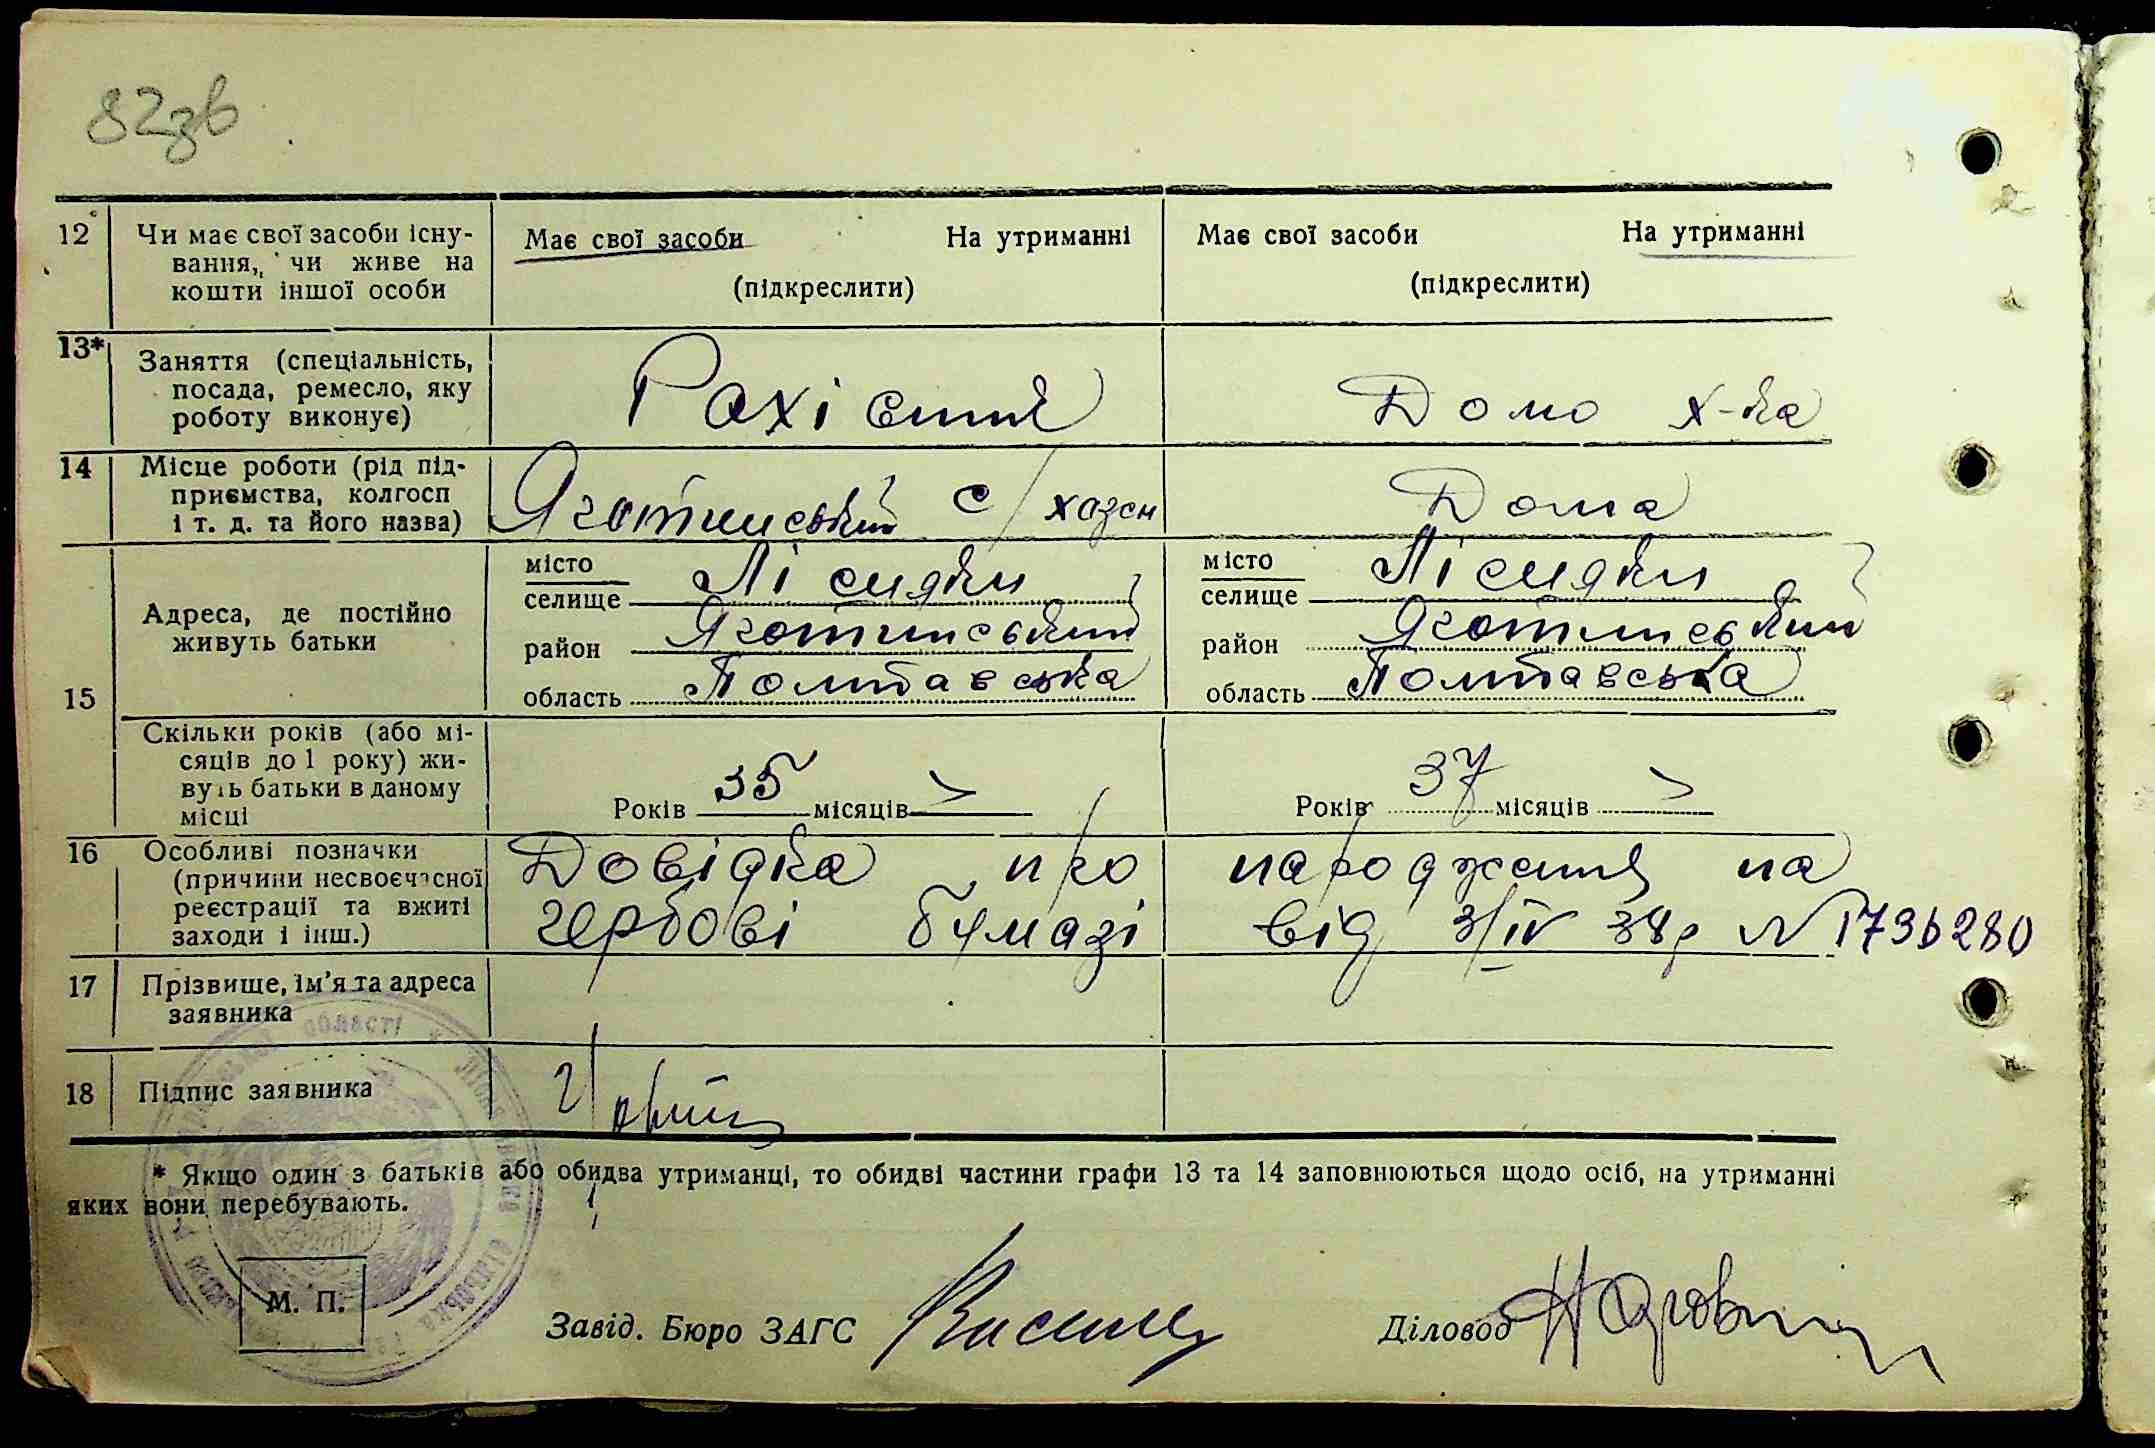 82зв
12 Чи має свої засоби існу-
вання, чи живе на
кошти іншої особи
Має свої засоби На утриманні
(підкреслити)
Має свої засоби На утриманні
(підкреслити)
13* Заняття (спеціальність,
посада, ремесло, яку
роботу виконує)
Домо х-ка
14 Місце роботи (рід під-
приємства, колгосп
і т. д. та його назва)
Яготинський с/хазсн
Дома
15 Адреса, де постійно
живуть батьки
місто
селище Лісняки
район Яготинський
область Полтавська
місто
селище Лісняки
район Яготинський
область Полтавська
Скільки років (або мі-
сяців до 1 року) жи-
вуть батьки в даному
місці
Років 35 місяців
Років 37 місяців
16 Особливі позначки
(причини несвоєчасної
реєстрації та вжиті
заходи і інш.)
Довідка про народження на
гербові бумазі від 3/IV 38р N 1736280
17 Прізвище, ім'я та адреса
заявника
18 Підпис заявника
* Якщо один з батьків або обидва утриманці, то обидві частини графи 13 та 14 заповнюються щодо осіб, на утриманні
яких вони перебувають.
М. П.
Завід. Бюро ЗАГС
Діловод